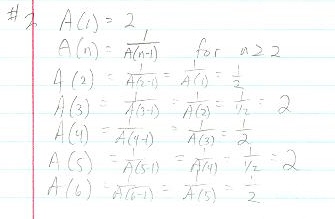 #2 A(1) = 2
A(n) = 1/A(n-1) for n ≥ 2
A(2) = 1/A(2-1) = 1/A(1) = 1/2
A(3) = 1/A(3-1) = 1/A(2) = 1/1/2 = 2
A(4) = 1/A(4-1) = 1/A(3) = 1/2
A(5) = 1/A(5-1) = 1/A(4) = 1/1/2 = 2
A(6) = 1/A(6-1) = 1/A(5) = 1/2